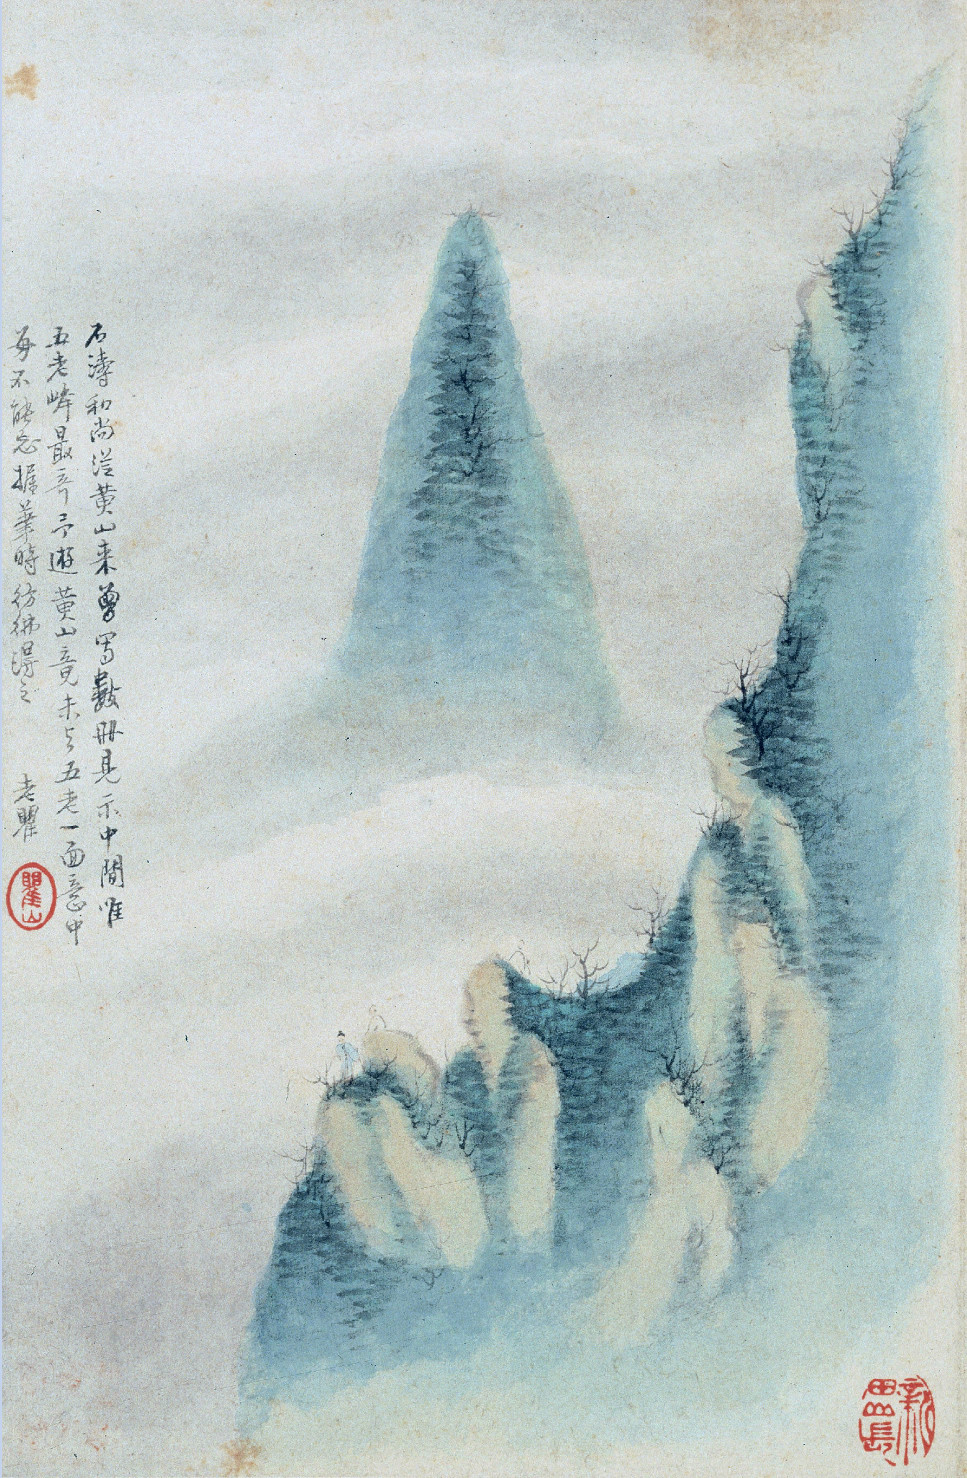 石濤和尚從黃山来曾寫數冊見示中間唯
五老峰最奇予遊黃山竟未与五老一面意中
每不能忘握筆時彷彿得之 老瞿
瞿山